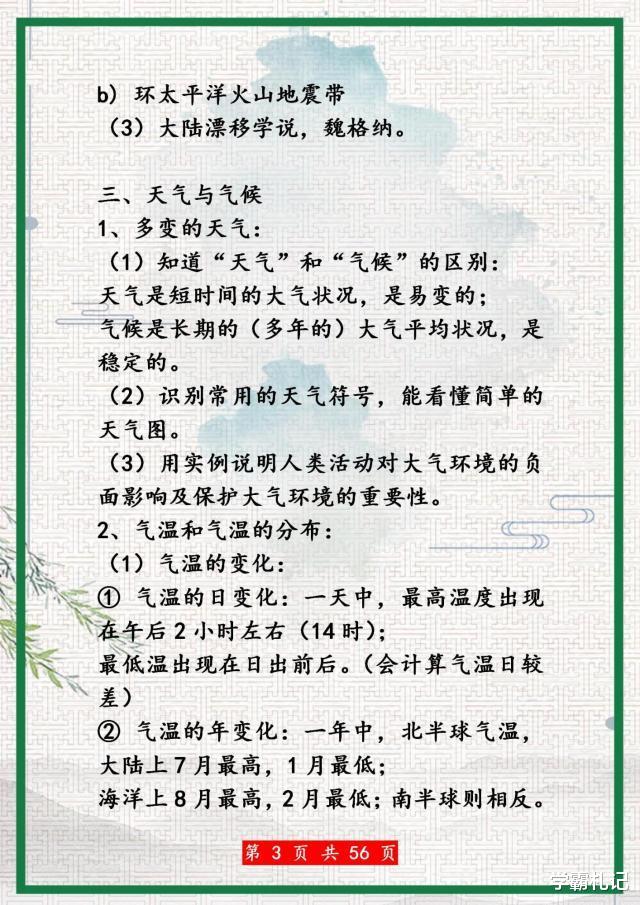 b) 环太平洋火山地震带
（3）大陆漂移学说，魏格纳。
三、天气与气候
1、多变的天气：
（1）知道“天气”和“气候”的区别：
天气是短时间的大气状况，是易变的；
气候是长期的（多年的）大气平均状况，是
稳定的。
（2）识别常用的天气符号，能看懂简单的
天气图。
（3）用实例说明人类活动对大气环境的负
面影响及保护大气环境的重要性。
2、气温和气温的分布：
（1）气温的变化：
① 气温的日变化：一天中，最高温度出现
在午后2小时左右（14时）；
最低温出现在日出前后。（会计算气温日较
差）
② 气温的年变化：一年中，北半球气温，
大陆上7月最高，1月最低；
海洋上8月最高，2月最低；南半球则相反。
第 3 页 共 56 页
学霸札记